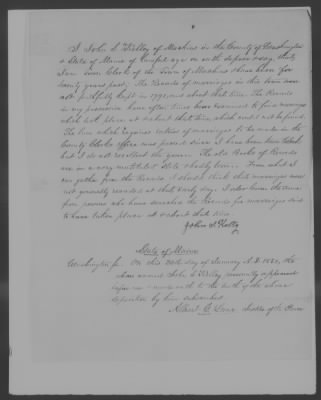 I John S. Kelley of Machias in the County of Washington
& State of Maine of lawful age on oath depose & say, that
I am Town Clerk of the Town of Machias & have been for
twenty years past. The Records of marriages in this town were
not faithfully kept in 1791 and about that time. The Records
in my possession have often times been examined to find marriages
which took place at & about that time, which could not be found.
The law which requires notices of marriages to be made in the
County Clerks office was passed since I have been Town Clerk
but I do not recollect the year. The old Books of Records
are in a very mutilated State & badly torn. From what I
can gather from the Records, I should think that marriages were
not generally recorded at that early day. I often hear the same
from persons who have searched the Records for marriages said
to have taken place at & about that time.
John S. Kelley
State of Maine
Washington ss. On this 20th day of January A.D. 1851, the
above named John S. Kelley personally appeared
before me & made oath to the truth of the above
deposition by him subscribed.
Albert Justice of the Peace